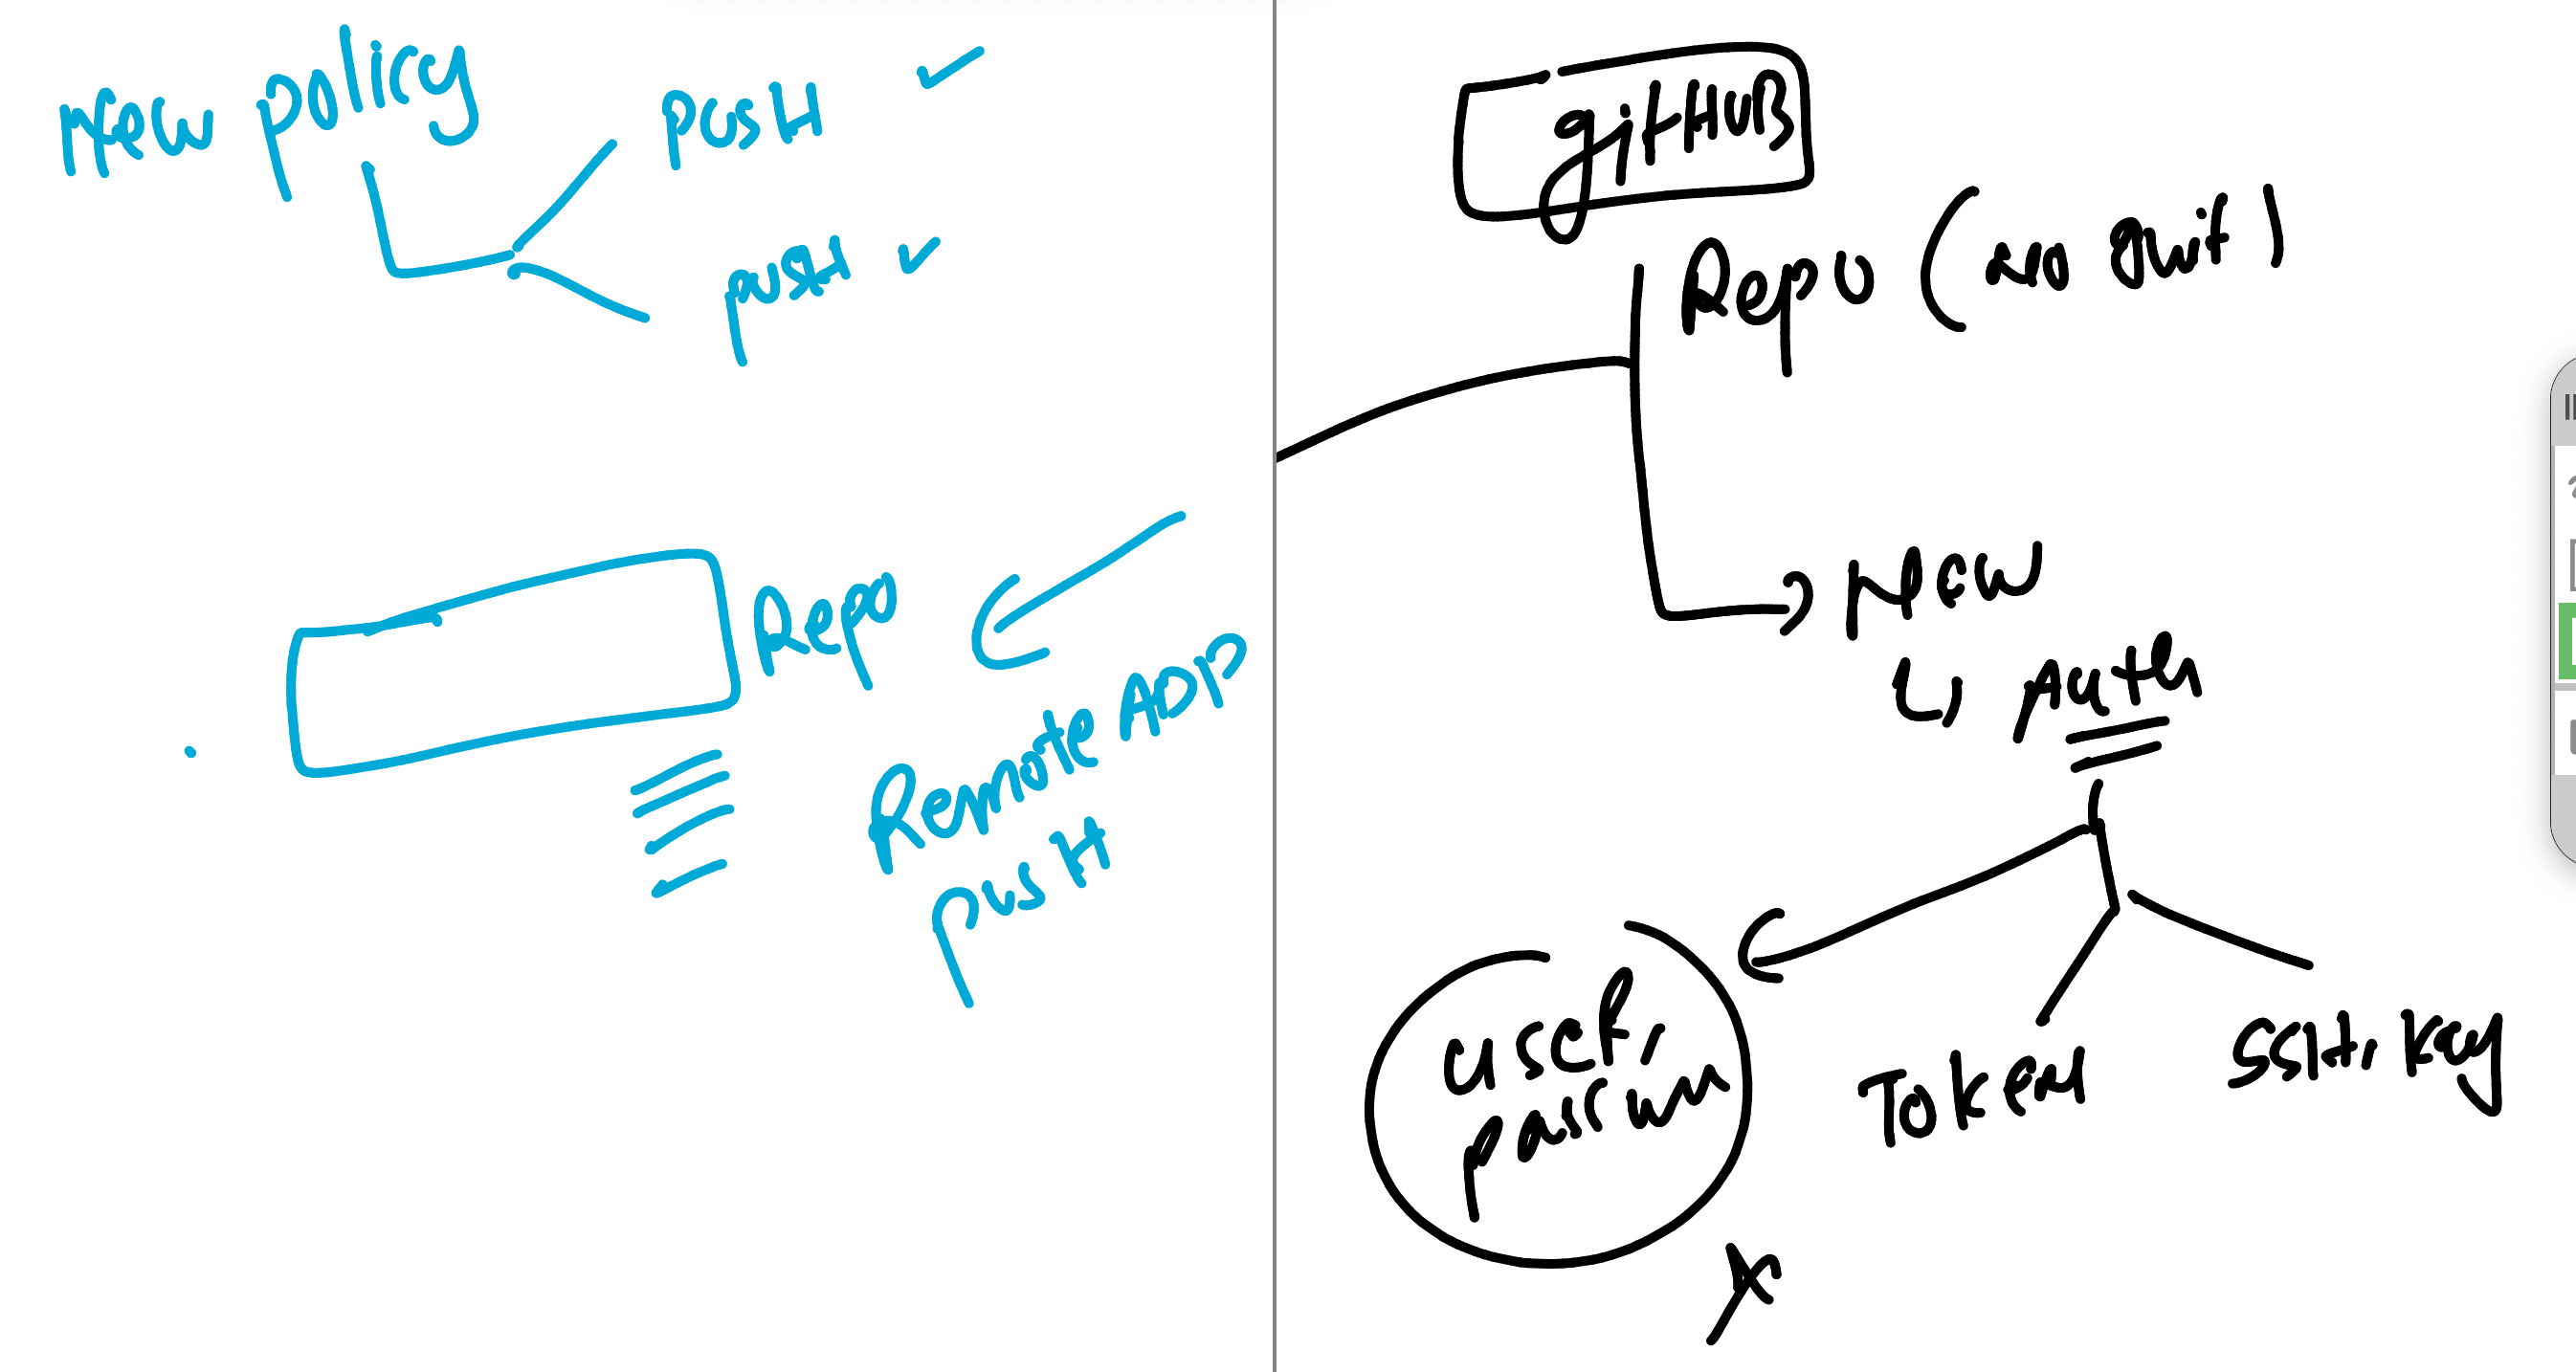 New policy
PUSH
PUSH
Repo
Remote ADD
PUSH
gitHUB
Repo (no
New
Auth
user,
Token
SSH, Key